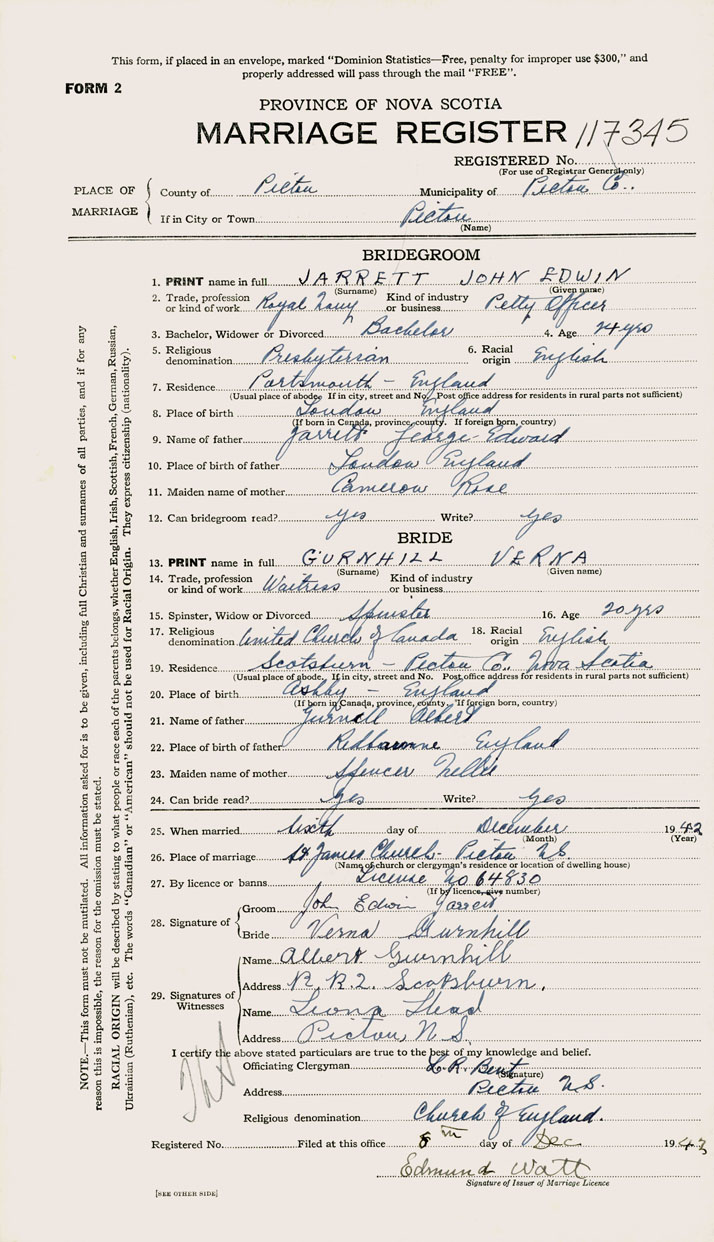 This form, if placed in an envelope, marked "Dominion Statistics—Free, penalty for improper use $300," and
properly addressed will pass through the mail "FREE".
FORM 2
PROVINCE OF NOVA SCOTIA
MARRIAGE REGISTER 117345
REGISTERED No.
(For use of Registrar General only)
PLACE OF MARRIAGE
County of Pictou Municipality of Pictou Co..
If in City or Town Pictou
(Name)
BRIDEGROOM
1. PRINT name in full JARRETT JOHN EDWIN
(Surname) (Given name)
2. Trade, profession or kind of work Royal Navy Kind of industry or business Petty Officer
3. Bachelor, Widower or Divorced Bachelor 4. Age 24 yrs
5. Religious denomination Presbyterian 6. Racial origin English
7. Residence Portsmouth - England
(Usual place of abode. If in city, street and No. Post office address for residents in rural parts not sufficient)
8. Place of birth London England
(If born in Canada, province, county. If foreign born, country)
9. Name of father Jarrett George Edward
10. Place of birth of father London England
11. Maiden name of mother Cameron Rose
12. Can bridegroom read? yes Write? yes
BRIDE
13. PRINT name in full GURNHILL VERNA
(Surname) (Given name)
14. Trade, profession or kind of work Waitress Kind of industry or business
15. Spinster, Widow or Divorced Spinster 16. Age 20 yrs
17. Religious denomination United Church of Canada 18. Racial origin English
19. Residence Scotsburn - Pictou Co., Nova Scotia
(Usual place of abode. If in city, street and No. Post office address for residents in rural parts not sufficient)
20. Place of birth Ashby - England
(If born in Canada, province, county. If foreign born, country)
21. Name of father Albert
22. Place of birth of father England
23. Maiden name of mother Spencer Nellie
24. Can bride read? Yes Write? Yes
25. When married Sixth day of December 1942
(Month) (Year)
26. Place of marriage St. James Church - Pictou N.S.
(Name of church or clergyman's residence or location of dwelling house)
27. By licence or banns License No 64830
(If by licence, give number)
28. Signature of
Groom John Edwin Jarrett
Bride Verna Gurnhill
29. Signatures of Witnesses
Name Albert Gurnhill
Address R.R.2. Scotsburn.
Name Leona
Address Pictou, N.S.
I certify the above stated particulars are true to the best of my knowledge and belief.
Officiating Clergyman L.R. Bent
(Signature)
Address Pictou N.S.
Religious denomination Church of England.
Registered No. Filed at this office 8th day of Dec 194
Edmund Watt
Signature of Issuer of Marriage Licence
[SEE OTHER SIDE]
NOTE.—This form must not be mutilated. All information asked for is to be given, including full Christian and surnames of all parties, and if for any
reason this is impossible, the reason for the omission must be stated.
RACIAL ORIGIN will be described by stating to what people or race each of the parents belongs, whether English, Irish, Scottish, French, German, Russian,
Ukrainian (Ruthenian), etc. The words "Canadian" or "American" should not be used for Racial Origin. They express citizenship (nationality).